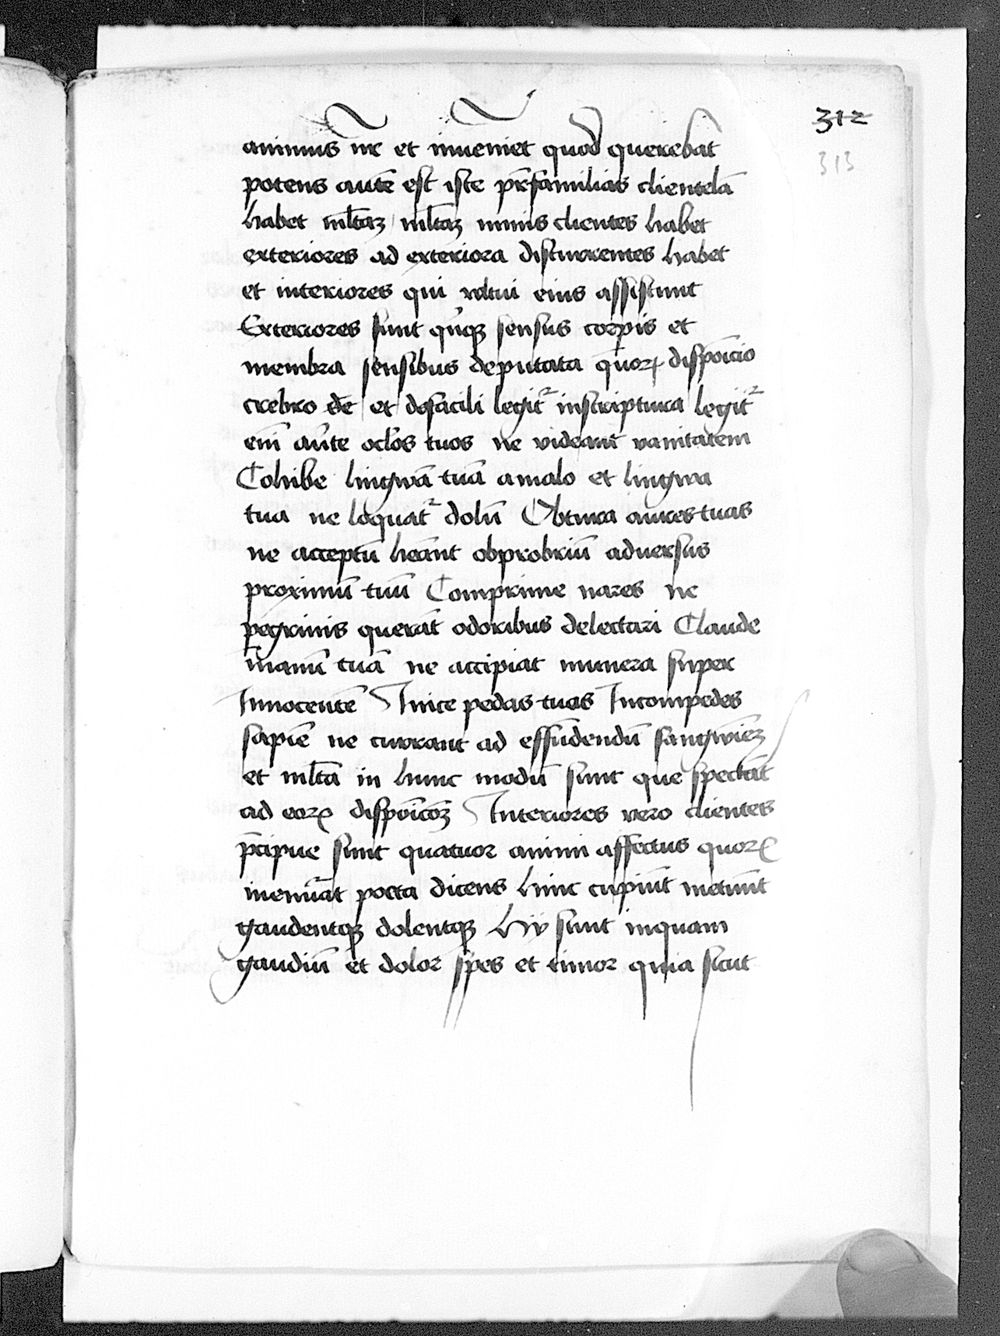 312
313
animus nr̄ et inueniet quod querebat̄
potens autē est iste pr̄familias clientelā
habet ml̄taʒ ml̄taʒ nimis clientes habet
exteriores ad exteriora discurrentes habet
et interiores qui vultui eius assistunt
Exteriores sunt quīqʒ sensus corpis et
membra sensibus deputata quoꝝ dispoīcio
crebro dē et defacili legit᷑ inscriptura legit᷑
enī aūte oclōs tuos ne videant vanitatem
Cohibe lingwā tuā a malo et lingwa
tua ne loquat᷑ dolū Obtura aures tuas
ne acceptū heānt obprobriū aduersus
proximū tuū Comprime nares ne
peg̱rinis querāt odoribus delectari Claude
manū tuā ne accipiat munera super
Innocentē Inice pedas tuas Incompedes
sapīe ne currant ad effūdendū sangwīeʒ
et ml̄ta in hunc modū sunt que spectāt
ad eoꝝ dispoīcōeʒ Interiores vero clientes
p̄cipue sunt quatuor animi affectus quoꝝ
meminit poeta dicens hinc cupiūt metuūt
gaudentqʒ dolentqʒ Hij sunt inquam
gaudiū et dolor spes et timor quia sicut